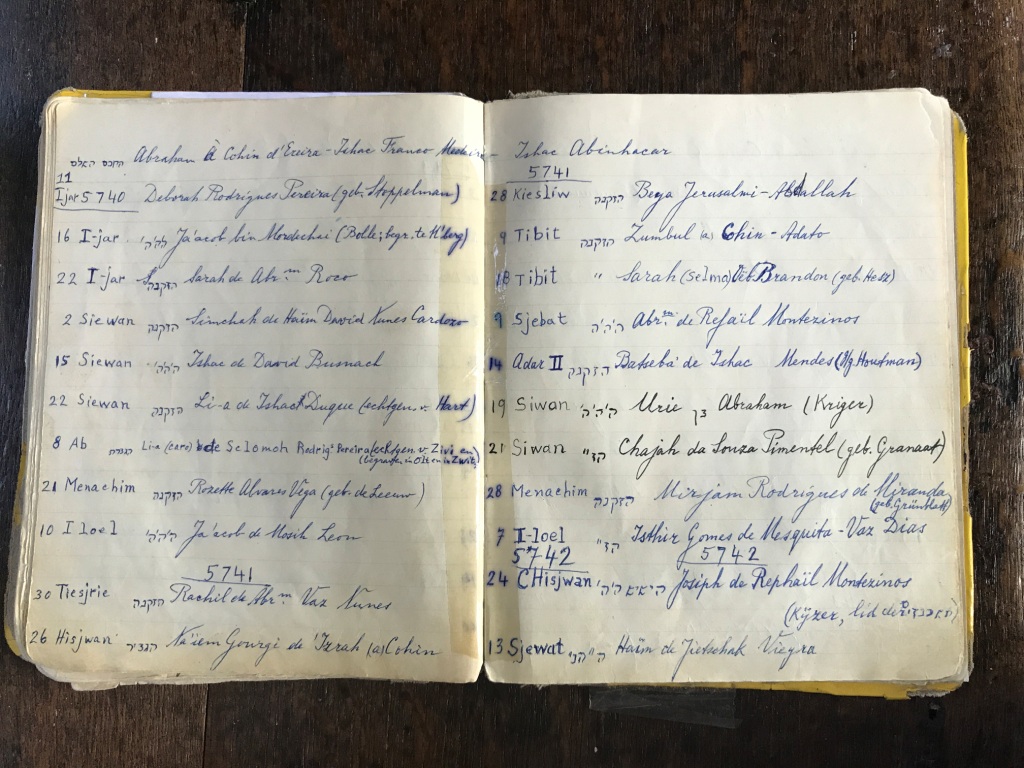 החכם האלם Abraham À Cohin d'Ezeira - Ishac Franco Medeiros
11
Ijar 5740 Deborah Rodrigues Pereira (geb. Stoppelman)
16 I-jar ה'ה'י Ja'acob bin Mordechai (Bolle; begr. te H'berg)
22 I-jar הזקנה Sarah de Abr.m Rozo
2 Siewan הזקנה Simchah de Haïm David Nunes Cardozo
15 Siewan ה'ה'י Ishac de David Busnach
22 Siewan הזקנה Li-a de Ishack Duque (echtgen. v. Hart)
8 Ab Lia (Caro) de Selomoh Rodrig.s Pereira (echtgen. v. Zivi en)
(begraften in Olten in Zwits.)
21 Menachim הזקנה Rozette Alvares Vega (geb. de Leeuw)
10 Iloel ה'ה'י Ja'acob de Mosih Leon
5741
30 Tiesjrie הזקנה Rachil de Abr.m Vaz Nunes
26 Hisjwan הגביר Na'iem Gourgi de 'Izrah (a) Cohin
Ishac Abinhacar
5741
28 Kiesliw הזקנה Beya Jerusalmi-Abdallah
9 Tibit הזקנה Zumbul (a) Cohin - Adato
18 Tibit " Sarah (Selma) Brandon (geb. Hesz)
9 Sjebat ה'ה'י Abr.m de Refaïl Montezinos
14 Adar II הזקנה Batseba' de Ishac Mendes (Houtman)
19 Siwan ה'ה'י Urie בן Abraham (Kriger)
21 Siwan הז" Chajah da Souza Pimentel (geb. Granaat)
28 Menachim הזקנה Mirjam Rodrigues de Miranda
(geb. Grünblatt)
7 I-loel הז" Isthir Gomes de Mesquita - Vaz Dias
5742 5742
24 CHisjwan היאא'ה'י Josiph de Rephaïl Montezinos
(Kÿzer, lid der
13 Sjewat Haïm de Jietschak Viegra